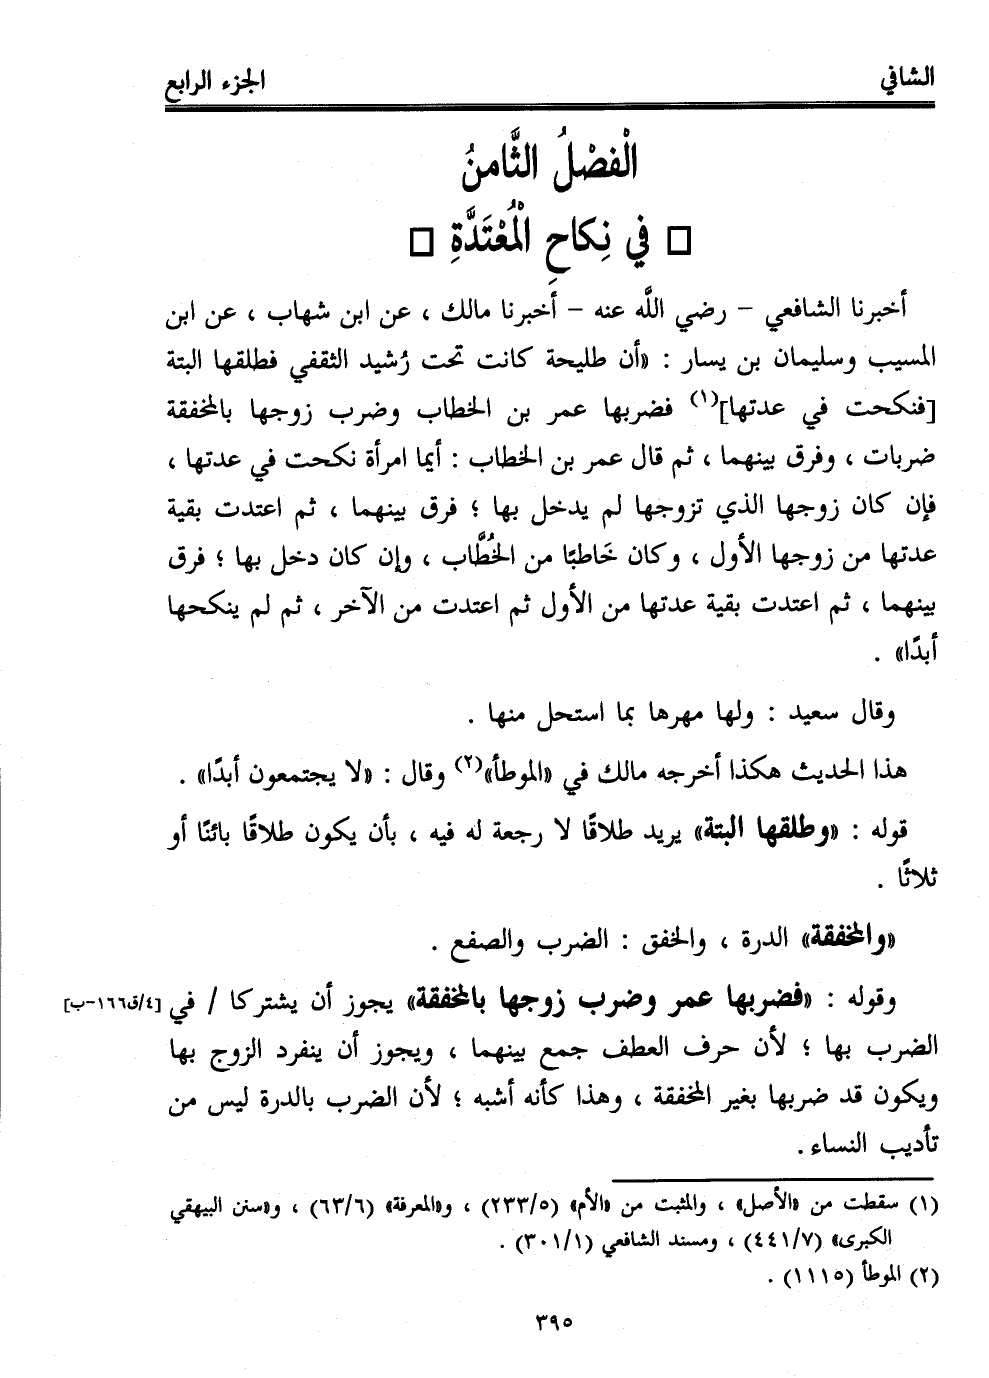 الشافي
الجزء الرابع
الْفصْلُ الثَّامنُ
□ في نِكاحِ الْمُعْتَدَّةِ □
أخبرنا الشافعي – رضي اللَّه عنه – أخبرنا مالك ، عن ابن شهاب ، عن ابن
المسيب وسليمان بن يسار : «أن طليحة كانت تحت رُشيد الثقفي فطلقها البتة
[فنكحت في عدتها](١) فضربها عمر بن الخطاب وضرب زوجها بالمخفقة
ضربات ، وفرق بينهما ، ثم قال عمر بن الخطاب : أيما امرأة نكحت في عدتها ،
فإن كان زوجها الذي تزوجها لم يدخل بها ؛ فرق بينهما ، ثم اعتدت بقية
عدتها من زوجها الأول ، وكان خَاطبًا من الخُطَّاب ، وإن كان دخل بها ؛ فرق
بينهما ، ثم اعتدت بقية عدتها من الأول ثم اعتدت من الآخر ، ثم لم ينكحها
أبدًا» .
وقال سعيد : ولها مهرها بما استحل منها .
هذا الحديث هكذا أخرجه مالك في «الموطأ»(٢) وقال : «لا يجتمعون أبدًا» .
قوله : «وطلقها البتة» يريد طلاقًا لا رجعة له فيه ، بأن يكون طلاقًا بائنًا أو
ثلاثًا .
«والمخفقة» الدرة ، والخفق : الضرب والصفع .
وقوله : «فضربها عمر وضرب زوجها بالمخفقة» يجوز أن يشتركا / في [٤/ق١٦٦-ب]
الضرب بها ؛ لأن حرف العطف جمع بينهما ، ويجوز أن ينفرد الزوج بها
ويكون قد ضربها بغير المخفقة ، وهذا كأنه أشبه ؛ لأن الضرب بالدرة ليس من
تأديب النساء .
(١) سقطت من «الأصل» ، والمثبت من «الأم» (٢٣٣/٥) ، و«المعرفة» (٦٣/٦) ، و«سنن البيهقي
الكبرى» (٤٤١/٧) ، ومسند الشافعي (٣٠١/١) .
(٢) الموطأ (١١١٥) .
٣٩٥